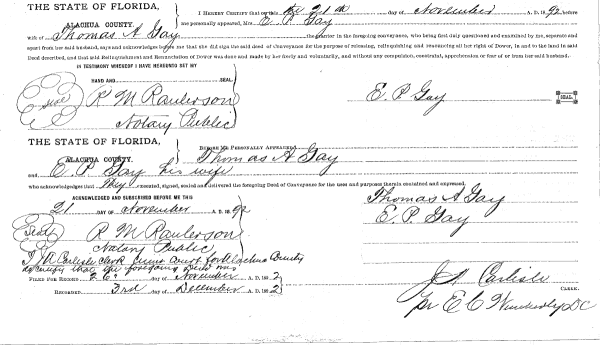 THE STATE OF FLORIDA,
ALACHUA COUNTY.
I HEREBY CERTIFY that on this the 21st day of November A. D. 1892 before
me personally appeared, Mrs. E. P. Gay
wife of Thomas A Gay the grantor in the foregoing conveyance, who being first duly questioned and examined by me, separate and
apart from her said husband, says and acknowledges before me that she did sign the said deed of Conveyance for the purpose of releasing, relinquishing and renouncing all her right of Dower, in and to the land in said
Deed described, and that said Relinquishment and Renunciation of Dower was done and made by her freely and voluntarily, and without any compulsion, constraint, apprehension or fear of or from her said husband.
IN TESTIMONY WHEREOF I HAVE HEREUNTO SET MY
HAND AND SEAL.
Seal R M Raulerson
Notary Public
E. P. Gay SEAL
THE STATE OF FLORIDA,
ALACHUA COUNTY.
BEFORE ME PERSONALLY APPEARED Thomas A Gay
and E. P. Gay his wife
who acknowledges that they executed, signed, sealed and delivered the foregoing Deed of Conveyance for the uses and purposes therein contained and expressed.
ACKNOWLEDGED AND SUBSCRIBED BEFORE ME THIS
21 DAY OF November A. D. 1892
Thomas A Gay
E. P. Gay
Seal R M Raulerson
Notary Public
I J A Carlisle Clerk Circuit Court for Alachua County
do certify that the foregoing Deed was
FILED FOR RECORD 26 day of November A.D. 1892
RECORDED 3rd day of December A.D. 1892
J A Carlisle
CLERK.
Pr E C Wimberly DC